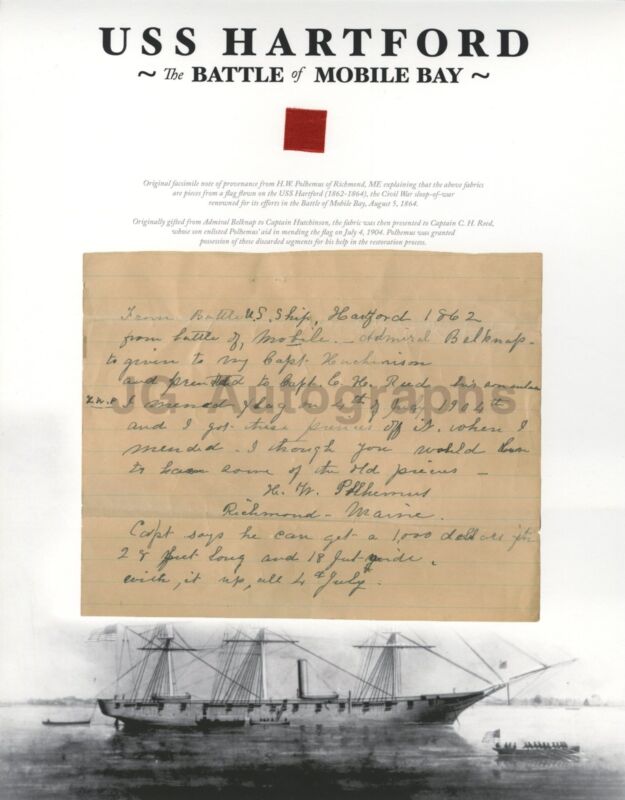 USS HARTFORD
~ The BATTLE of MOBILE BAY ~
Original facsimile note of provenance from H.W. Polhemus of Richmond, ME explaining that the above fabrics
are pieces from a flag flown on the USS Hartford (1862-1864), the Civil War sloop-of-war
renowned for its efforts in the Battle of Mobile Bay, August 5, 1864.
Originally gifted from Admiral Belknap to Captain Hutchinson, the fabric was then presented to Captain C. H. Reed,
whose son enlisted Polhemus' aid in mending the flag on July 4, 1904. Polhemus was granted
possession of these discarded segments for his help in the restoration process.
From Battle U.S. Ship, Hartford 1862
from battle of, Mobile. - Admiral Belknap -
to given to my Capt. Hutchinson
and to Capt C. H. Reed his
H.W.P I mened flag 4th of July, 1904th
and I got these pieces off it. where I
mended. I though you would
to have some of the old pieces -
H. W. Polhemus
Richmond - Maine.
Capt says he can get a 1,000 dollars
28 feet long and 18 fut wide.
with, it up, all 4th July.
JG Autographs